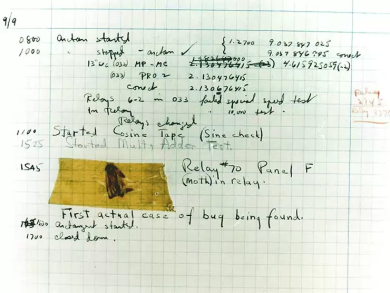 9/9
0800 antan started { 1.2700 9.037 847 025
1000 " stopped - antan ✓ 9.037 846 995 conect
13" uc (032) MP - MC 2.130476415 4.615925059 (-2)
(033) PRO 2 2.130476415
conect 2.130676415
Relays 6-2 in 033 failed special speed test
in Relay " 10,000 test
Relays changed
1100 Started Cosine Tape (Sine check)
1525 Started Multy Adder Test.
1545 Relay #70 Panel F
(Moth) in relay.
First actual case of bug being found.
antangent started.
1700 closed down.